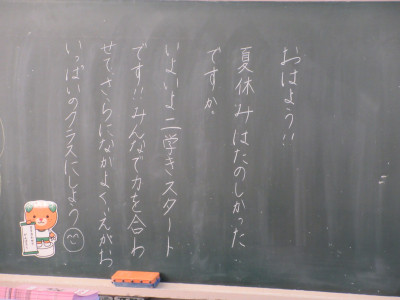 おはよう!!
夏休みはたのしかった
ですか。
いよいよ二学きスタート
です!!みんなで力を合わ
せて、さらになかよく、えがお
いっぱいのクラスにしよう